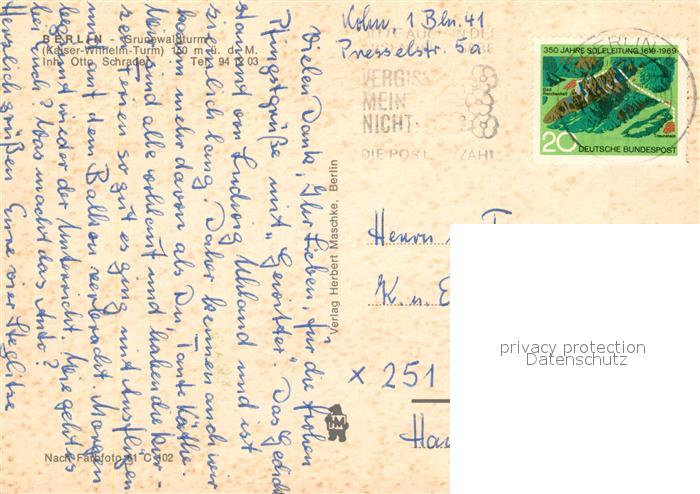 BERLIN - Grunewaldturm
(Kaiser-Wilhelm-Turm) 130 m ü. d. M.
Inh. Otto Schrader Tel. 94 12 03
Vielen Dank, Ihr Lieben, für die frohen
Pfingstgrüße mit „Gewitter". Das Gedicht
stammt von Ludwig Uhland und ist
ziemlich lang. Daher kennen auch wir
kaum mehr davon als Du, Tante Käthe.
Wir sind alle wohlauf und haben die kur-
zen Ferien so gut es ging mit Ausflügen
und auf dem Balkon verbracht. Morgen
beginnt wieder der Unterricht. Wie geht es
bei Euch? Was macht das Auto?
Herzlich grüßen Eure vier Steglitzer
Nach Farbfoto 61 C 102
Verlag Herbert Maschke, Berlin
HM
Kohn, 1 Bln. 41
Presselstr. 5a
BITTE AUCH IN DER
VERGISS
MEIN
NICHT
DIE POST ZAHL
BERLIN
350 JAHRE SOLELEITUNG 1619-1969
Bad Reichenhall
Traunstein
20 DEUTSCHE BUNDESPOST
Herrn u. F
K. u. E
x 251
Ha
privacy protection
Datenschutz